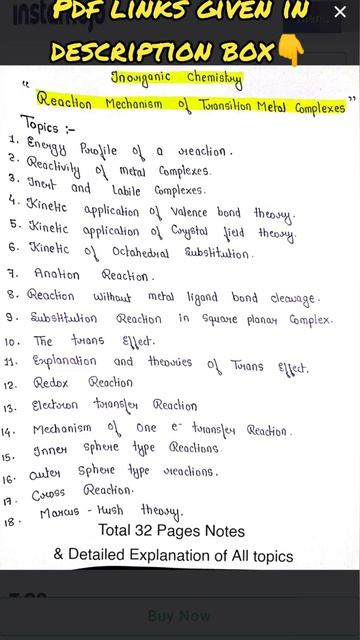 PDF LINKS GIVEN IN
DESCRIPTION BOX👇
"Inorganic Chemistry
Reaction Mechanism of Transition Metal Complexes"
Topics :-
1. Energy Profile of a reaction.
2. Reactivity of metal Complexes.
3. Inert and Labile Complexes.
4. Kinetic application of Valence bond theory.
5. Kinetic application of Crystal field theory.
6. Kinetic of Octahedral Substitution.
7. Anation Reaction.
8. Reaction without metal ligand bond cleavage.
9. Substitution Reaction in Square planar Complex.
10. The trans Effect.
11. Explanation and theories of Trans Effect.
12. Redox Reaction
13. Electron transfer Reaction
14. Mechanism of One e⁻ transfer Reaction.
15. Inner sphere type Reactions
16. Outer Sphere type reactions.
17. Cross Reaction.
18. Marcus - Hush theory.
Total 32 Pages Notes
& Detailed Explanation of All topics
Buy Now